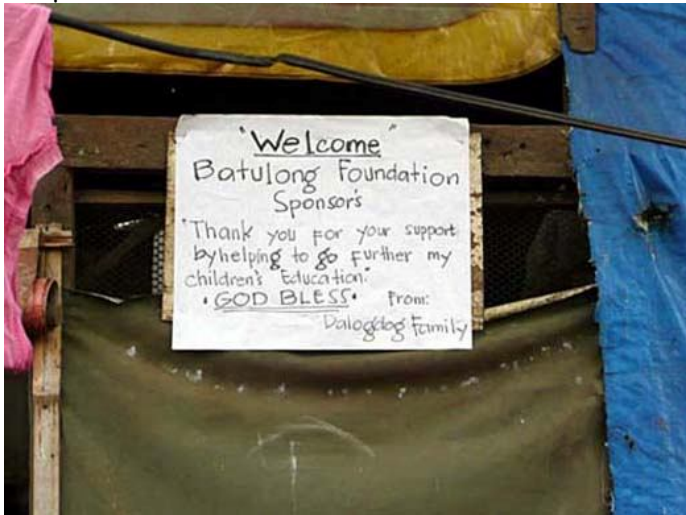 "Welcome"
Batulong Foundation
Sponsor's
"Thank you for your support
by helping to go further my
children's Education."
• GOD BLESS • From:
Dalogdog Family